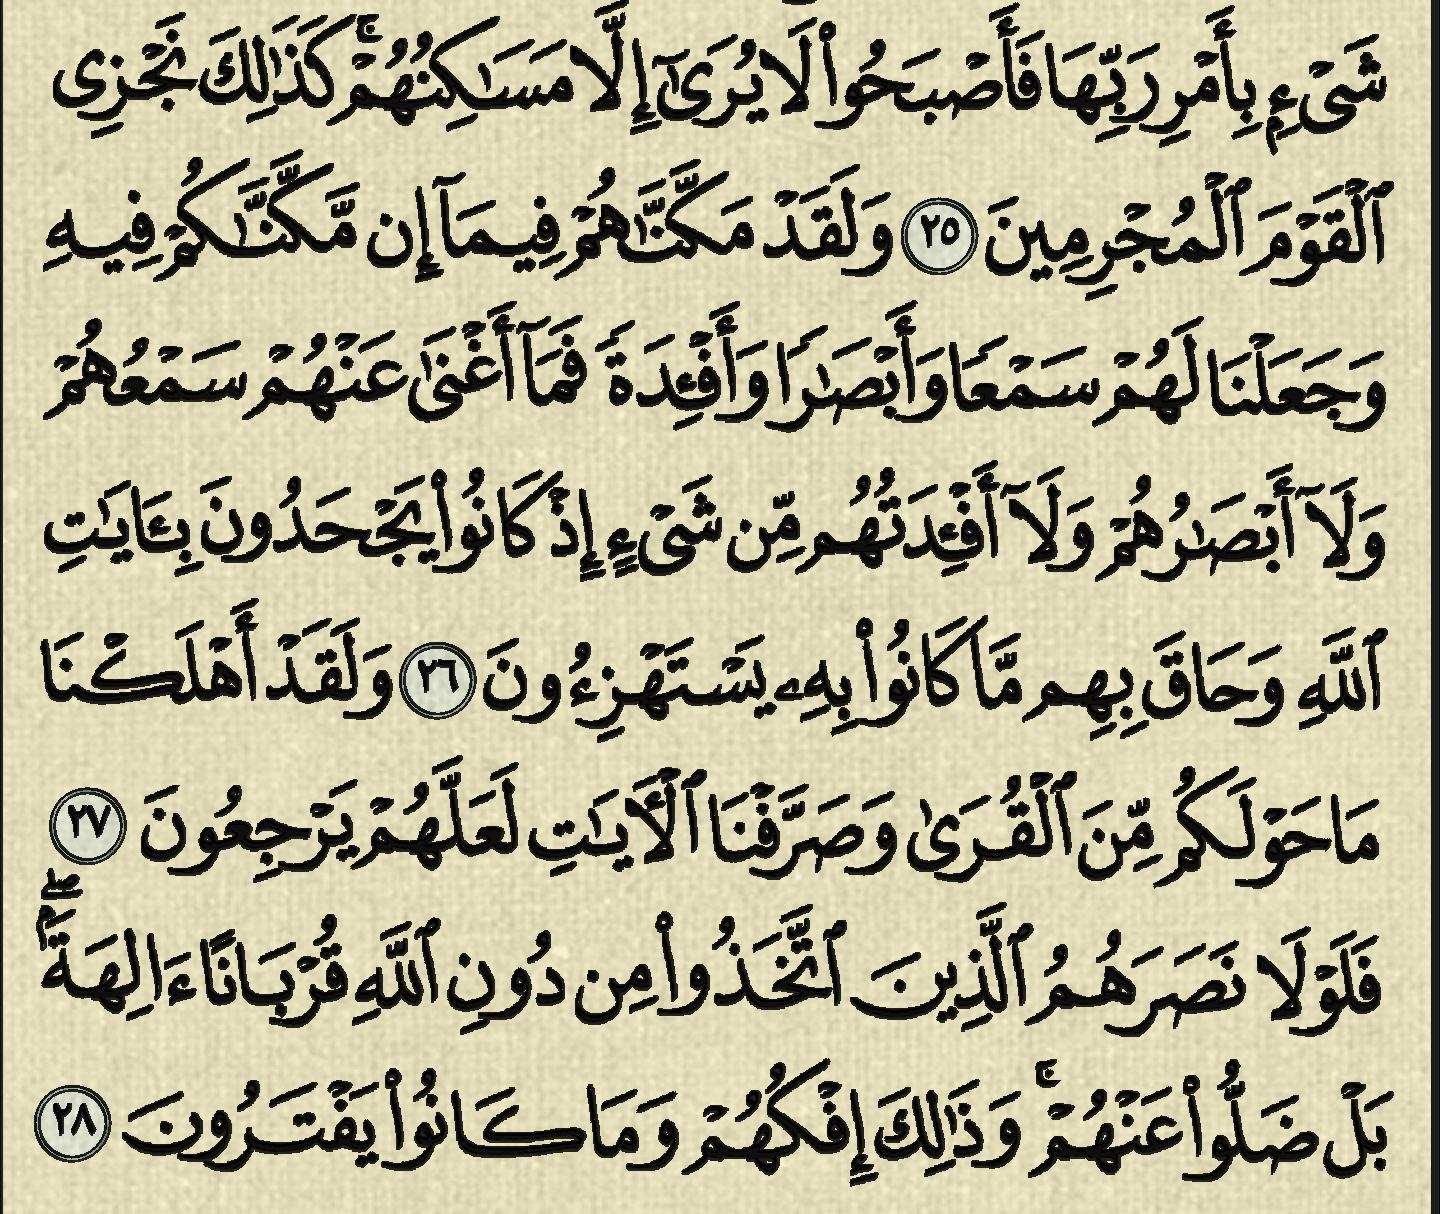 شَىْءٍۭ بِأَمْرِ رَبِّهَا فَأَصْبَحُوا۟ لَا يُرَىٰٓ إِلَّا مَسَـٰكِنُهُمْ ۚ كَذَٰلِكَ نَجْزِى
ٱلْقَوْمَ ٱلْمُجْرِمِينَ ٢٥ وَلَقَدْ مَكَّنَّـٰهُمْ فِيمَآ إِن مَّكَّنَّـٰكُمْ فِيهِ
وَجَعَلْنَا لَهُمْ سَمْعًا وَأَبْصَـٰرًا وَأَفْـِٔدَةً فَمَآ أَغْنَىٰ عَنْهُمْ سَمْعُهُمْ
وَلَآ أَبْصَـٰرُهُمْ وَلَآ أَفْـِٔدَتُهُم مِّن شَىْءٍ إِذْ كَانُوا۟ يَجْحَدُونَ بِـَٔايَـٰتِ
ٱللَّهِ وَحَاقَ بِهِم مَّا كَانُوا۟ بِهِۦ يَسْتَهْزِءُونَ ٢٦ وَلَقَدْ أَهْلَكْنَا
مَا حَوْلَكُم مِّنَ ٱلْقُرَىٰ وَصَرَّفْنَا ٱلْـَٔايَـٰتِ لَعَلَّهُمْ يَرْجِعُونَ ٢٧
فَلَوْلَا نَصَرَهُمُ ٱلَّذِينَ ٱتَّخَذُوا۟ مِن دُونِ ٱللَّهِ قُرْبَانًا ءَالِهَةًۢ ۖ
بَلْ ضَلُّوا۟ عَنْهُمْ ۚ وَذَٰلِكَ إِفْكُهُمْ وَمَا كَانُوا۟ يَفْتَرُونَ ٢٨